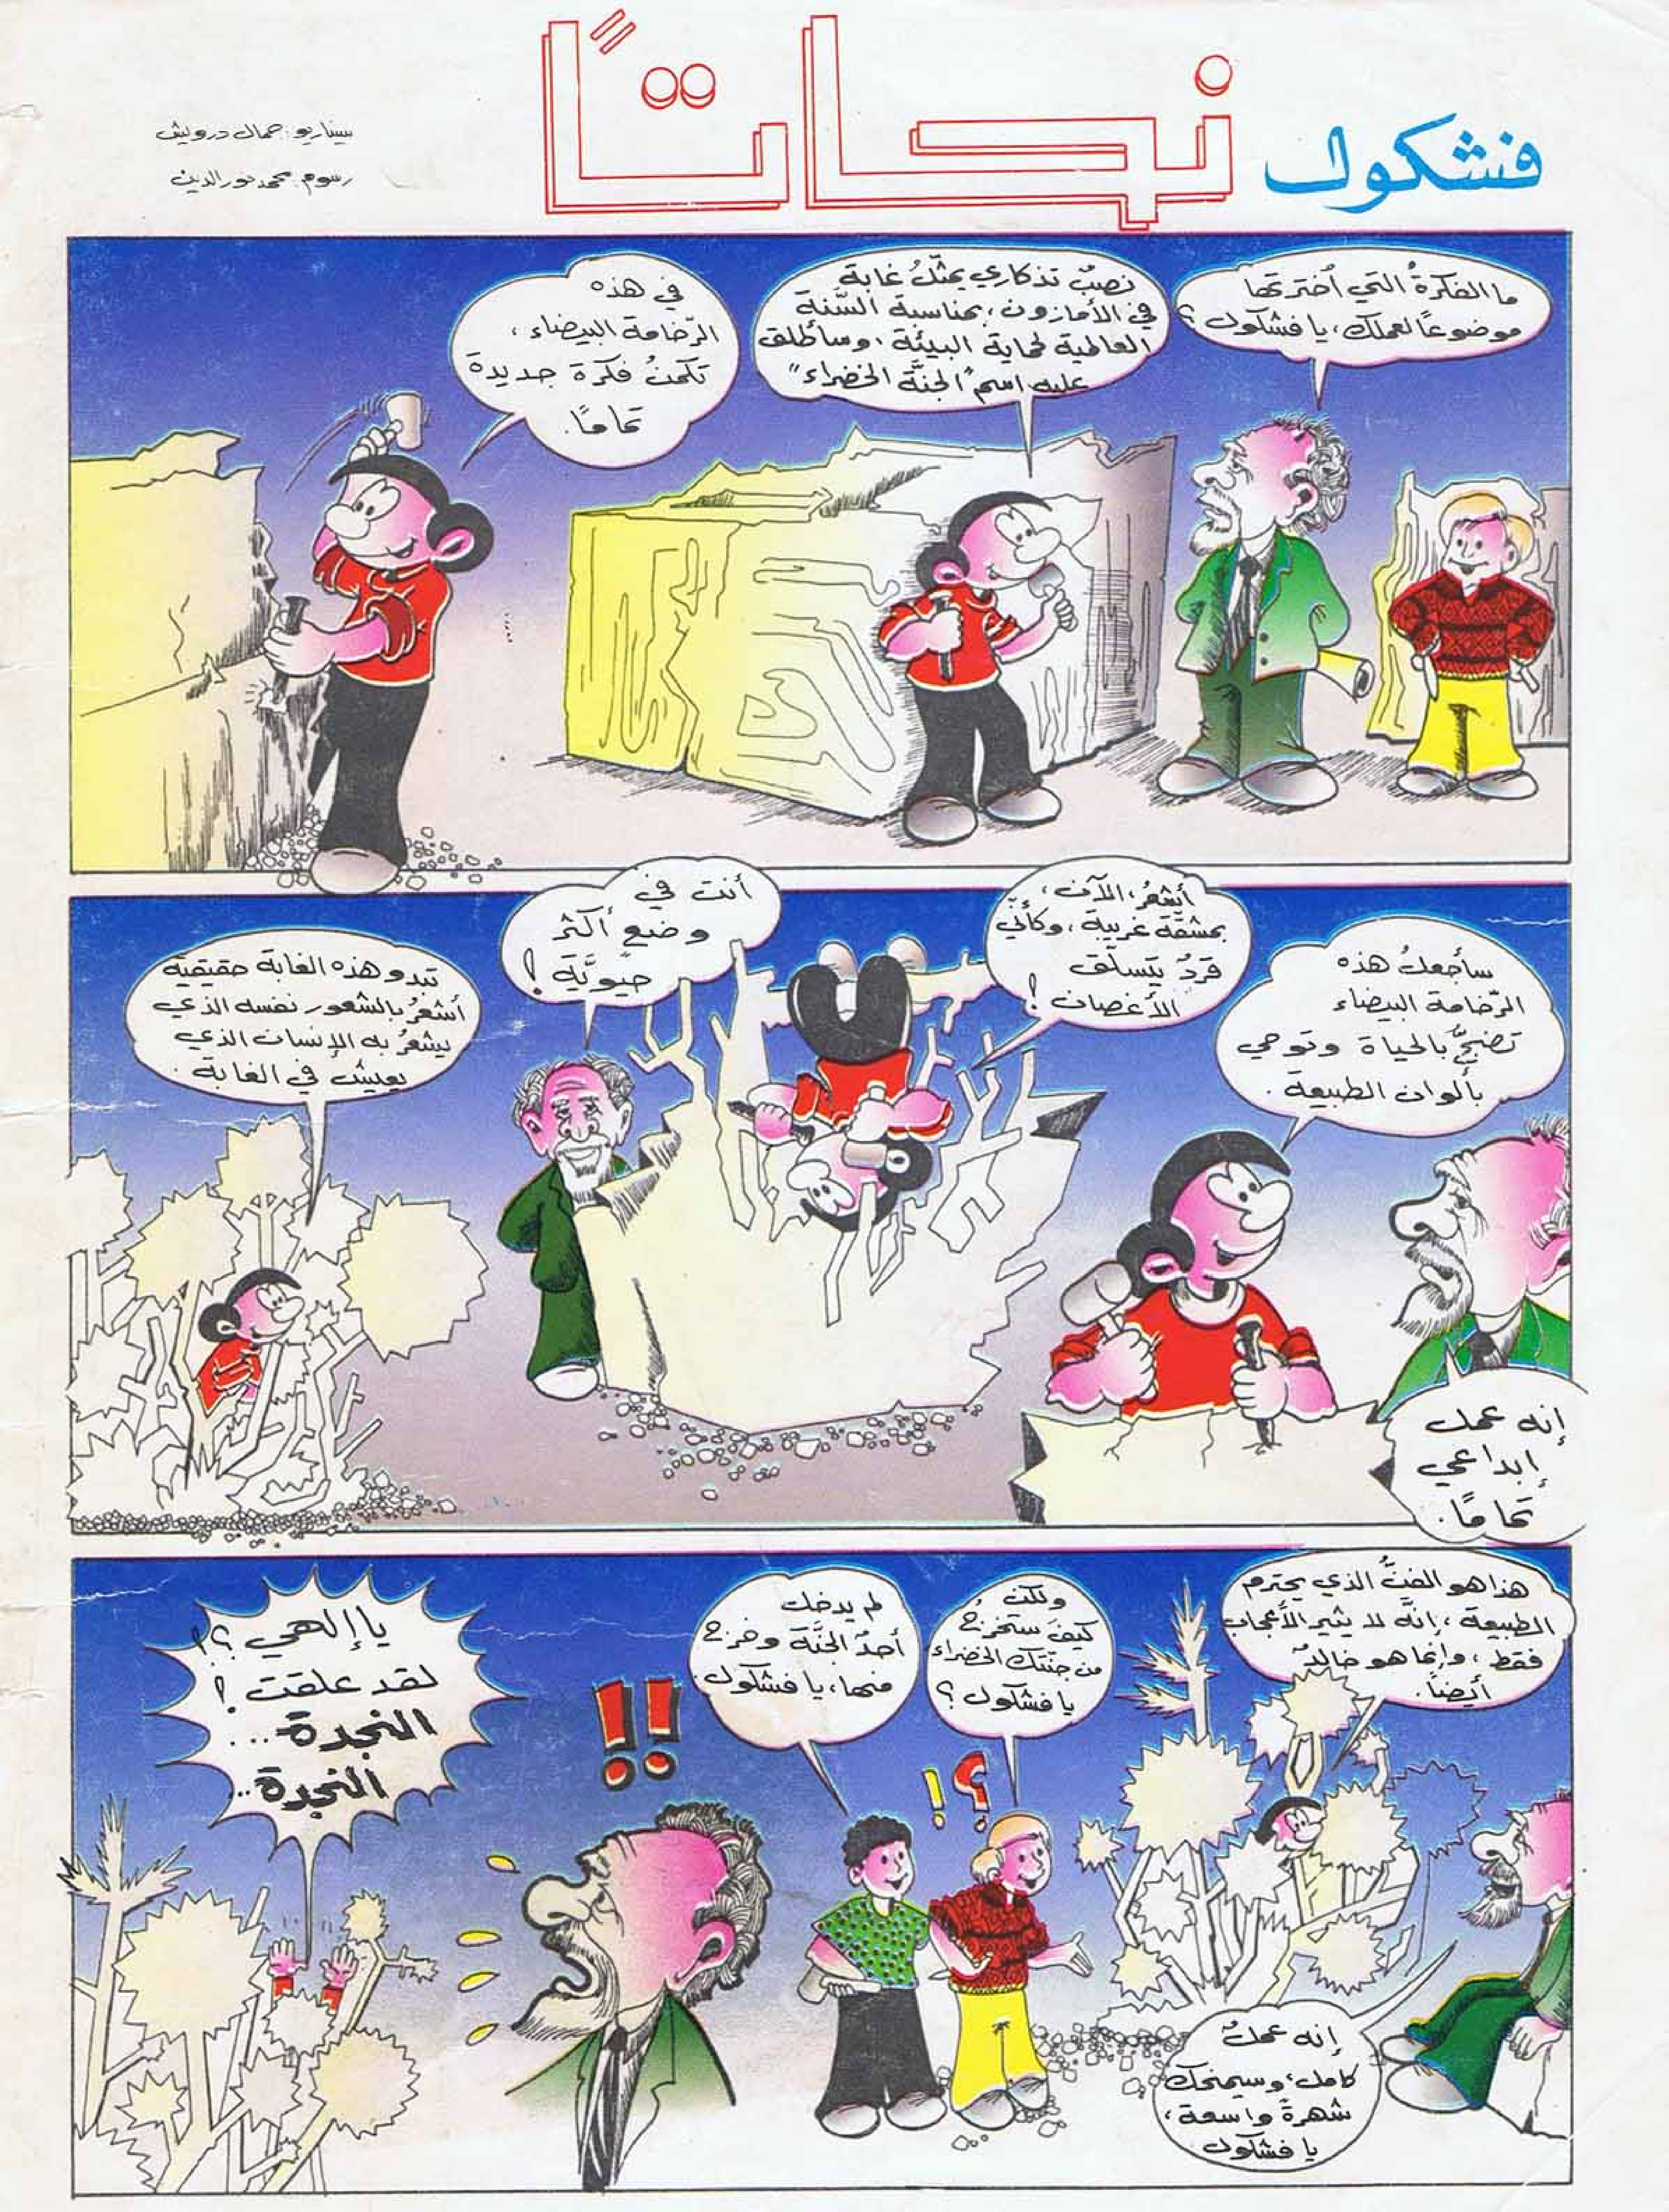 فشكول نحاتًا
سيناريو: جمال درويش
رسوم: محمد نور الدين
ما الفكرةُ التي اخترتها
موضوعًا لعملك، يا فشكول؟
نصبٌ تذكاري يمثّلُ غابة
في الأمازون، بمناسبة السَّنة
العالمية لحماية البيئة، وسأطلق
عليه اسم "الجنَّة الخضراء"
في هذه
الرّخامة البيضاء،
تكمنُ فكرة جديدة
تمامًا.
سأجعلُ هذه
الرّخامة البيضاء
تضجّ بالحياة وتوحي
بألوان الطبيعة.
إنه عمل
إبداعي
تمامًا.
أشعُر، الآن،
بمشقّة غريبة، وكأنّي
قردٌ يتسلّق
الأغصان!
أنت في
وضعٍ أكثر
حيويَّة!
تبدو هذه الغابة حقيقية
أشعُر بالشعور نفسه الذي
يشعُر به الإنسان الذي
يعيش في الغابة.
هذا هو الفنُّ الذي يحترم
الطبيعة، إنَّه لا يثير الأعجاب
فقط، وإنما هو خالدٌ
أيضًا.
إنه عملٌ
كامل، وسيمنحك
شهرةً واسعة،
يا فشكول.
ولكن
كيفَ ستخرجُ
من جنَّتك الخضراء
يا فشكول؟
لم يدخل
أحدٌ الجنَّة وخرج
منها، يا فشكول.
؟!
!!
يا إلهي؟!
لقد علقت!
النجدة...
النجدة...